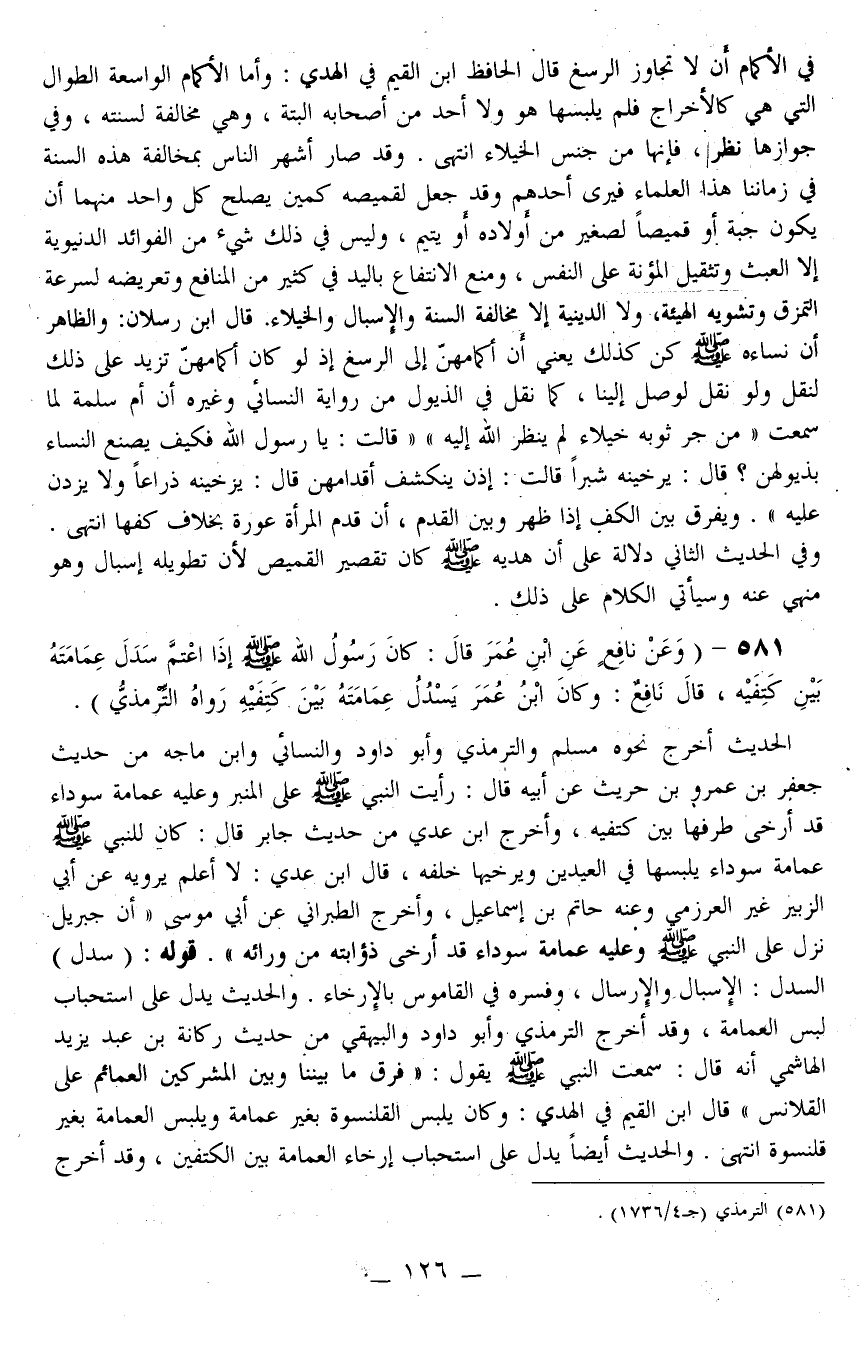 في الأكمام أن لا تجاوز الرسغ قال الحافظ ابن القيم في الهدي : وأما الأكمام الواسعة الطوال
التي هي كالأخراج فلم يلبسها هو ولا أحد من أصحابه البتة ، وهي مخالفة لسنته ، وفي
جوازها نظر ، فإنها من جنس الخيلاء انتهى . وقد صار أشهر الناس بمخالفة هذه السنة
في زماننا هذا العلماء فيرى أحدهم وقد جعل لقميصه كمين يصلح كل واحد منهما أن
يكون جبة أو قميصاً لصغير من أولاده أو يتيم ، وليس في ذلك شيء من الفوائد الدنيوية
إلا العبث وتثقيل المؤنة على النفس ، ومنع الانتفاع باليد في كثير من المنافع وتعريضه لسرعة
التمزق وتشويه الهيئة، ولا الدينية إلا مخالفة السنة والإسبال والخيلاء. قال ابن رسلان: والظاهر
أن نساءه ﷺ كن كذلك يعني أن أكمامهنّ إلى الرسغ إذ لو كان أكمامهنّ تزيد على ذلك
لنقل ولو نقل لوصل إلينا ، كما نقل في الذيول من رواية النسائي وغيره أن أم سلمة لما
سمعت « من جر ثوبه خيلاء لم ينظر الله إليه » « قالت : يا رسول الله فكيف يصنع النساء
بذيولهن ؟ قال : يرخينه شبراً قالت : إذن ينكشف أقدامهن قال : يرخينه ذراعاً ولا يزدن
عليه » . ويفرق بين الكف إذا ظهر وبين القدم ، أن قدم المرأة عورة بخلاف كفها انتهى .
وفي الحديث الثاني دلالة على أن هديه ﷺ كان تقصير القميص لأن تطويله إسبال وهو
منهي عنه وسيأتي الكلام على ذلك .
٥٨١ – ( وَعَنْ نافِعٍ عَنِ ابْنِ عُمَرَ قالَ : كانَ رَسُولُ الله ﷺ إذَا اعْتمَّ سَدَلَ عِمَامَتَهُ
بَيْنِ كَتِفَيْه ، قالَ نَافِعٌ : وكانَ ابْنُ عُمَرَ يَسْدُلُ عِمَامَتَهُ بَيْنَ كَتِفَيْهِ رَواهُ التِّرْمذيُّ ) .
الحديث أخرج نحوه مسلم والترمذي وأبو داود والنسائي وابن ماجه من حديث
جعفر بن عمرو بن حريث عن أبيه قال : رأيت النبي ﷺ على المنبر وعليه عمامة سوداء
قد أرخى طرفها بين كتفيه ، وأخرج ابن عدي من حديث جابر قال : كان للنبي ﷺ
عمامة سوداء يلبسها في العيدين ويرخيها خلفه ، قال ابن عدي : لا أعلم يرويه عن أبي
الزبير غير العرزمي وعنه حاتم بن إسماعيل ، وأخرج الطبراني عن أبي موسى « أن جبريل
نزل على النبي ﷺ وعليه عمامة سوداء قد أرخى ذؤابته من ورائه » . قوله : ( سدل )
السدل : الإسبال والإرسال ، وفسره في القاموس بالإرخاء . والحديث يدل على استحباب
لبس العمامة ، وقد أخرج الترمذي وأبو داود والبيهقي من حديث ركانة بن عبد يزيد
الهاشمي أنه قال : سمعت النبي ﷺ يقول : « فرق ما بيننا وبين المشركين العمائم على
القلانس » قال ابن القيم في الهدي : وكان يلبس القلنسوة بغير عمامة ويلبس العمامة بغير
قلنسوة انتهى . والحديث أيضاً يدل على استحباب إرخاء العمامة بين الكتفين ، وقد أخرج
(٥٨١) الترمذي (جـ٤/١٧٣٦) .
– ١٢٦ –